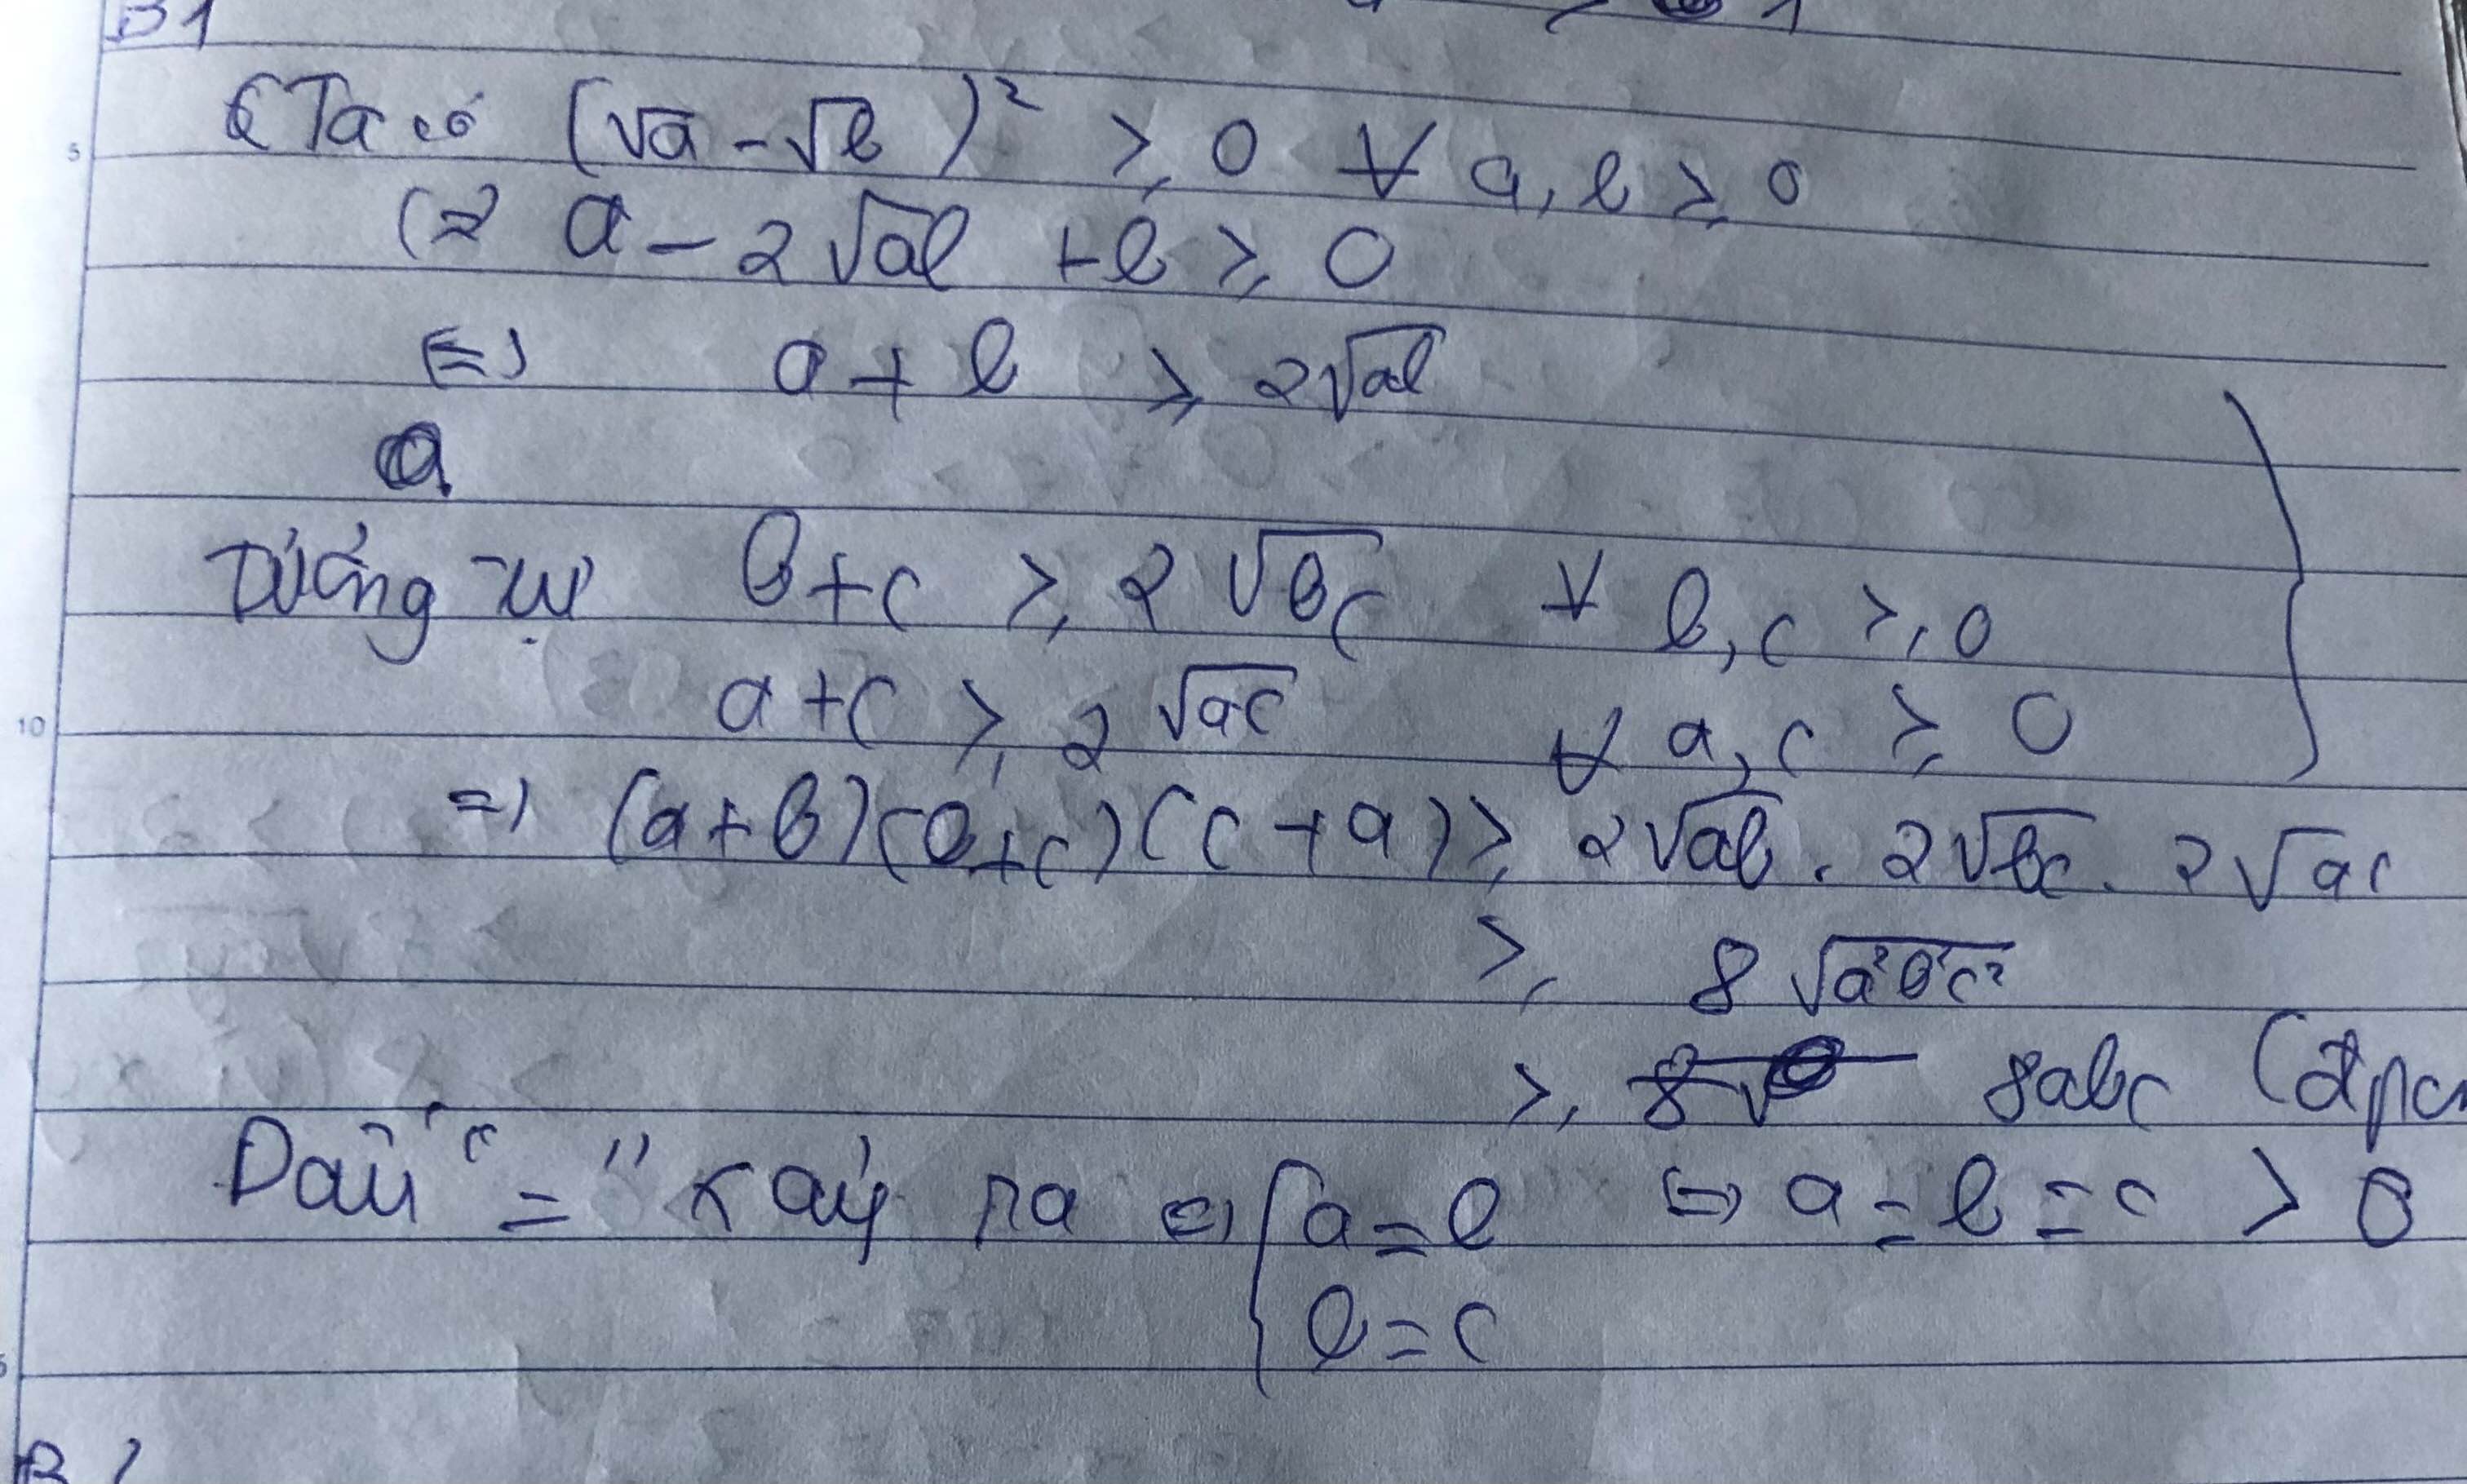 B1
Ta có (√a - √b)² ≥ 0 ∀ a, b ≥ 0
(=) a - 2√ab + b ≥ 0
(=) a + b ≥ 2√ab
Tương tự b + c ≥ 2√bc ∀ b, c ≥ 0
a + c ≥ 2√ac ∀ a, c ≥ 0
=) (a + b)(b + c)(c + a) ≥ 2√ab . 2√bc . 2√ac
≥ 8√a²b²c²
≥ 8abc (đpc
Dấu "=" xảy ra (=) { a = b (=) a = b = c > 0
b = c